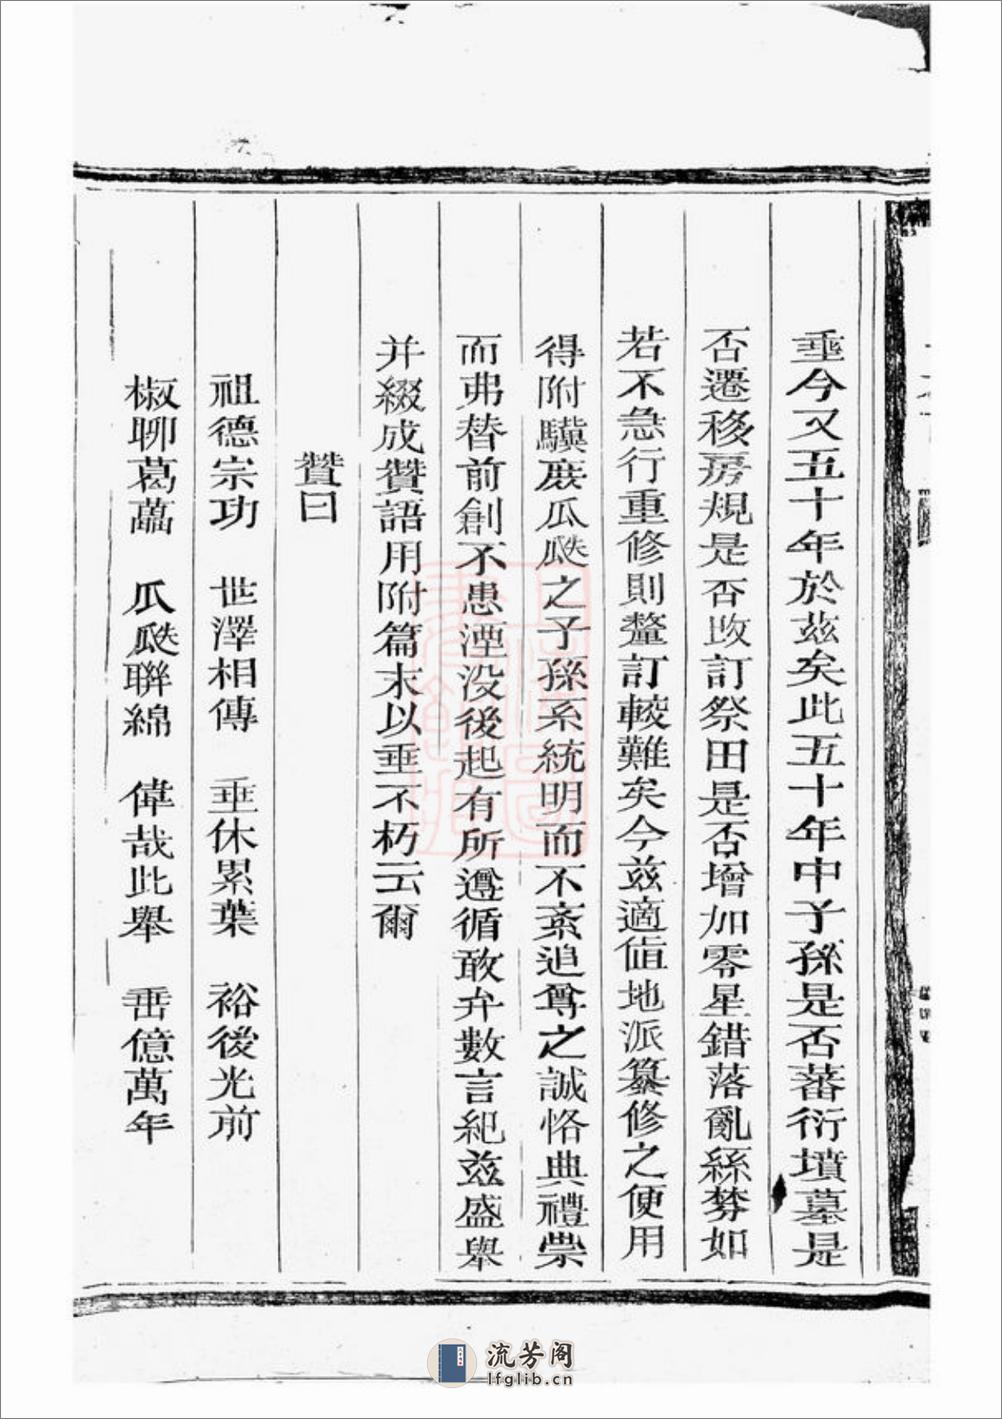 垂今又五十年於茲矣此五十年中子孫是否蕃衍墳墓是
否遷移房規是否改訂祭田是否增加零星錯落亂絲棼如
若不急行重修則釐訂較難矣今茲適值地派纂修之便用
得附驥庶瓜瓞之子孫系統明而不紊追尊之誠恪典禮崇
而弗替前創不患湮没後起有所遵循敢弁數言紀茲盛舉
并綴成贊語用附篇末以垂不朽云爾
贊曰
祖德宗功 世澤相傳 垂休累葉 裕後光前
椒聊葛藟 瓜瓞聯綿 偉哉此舉 垂億萬年
流芳阁
lfglib.cn